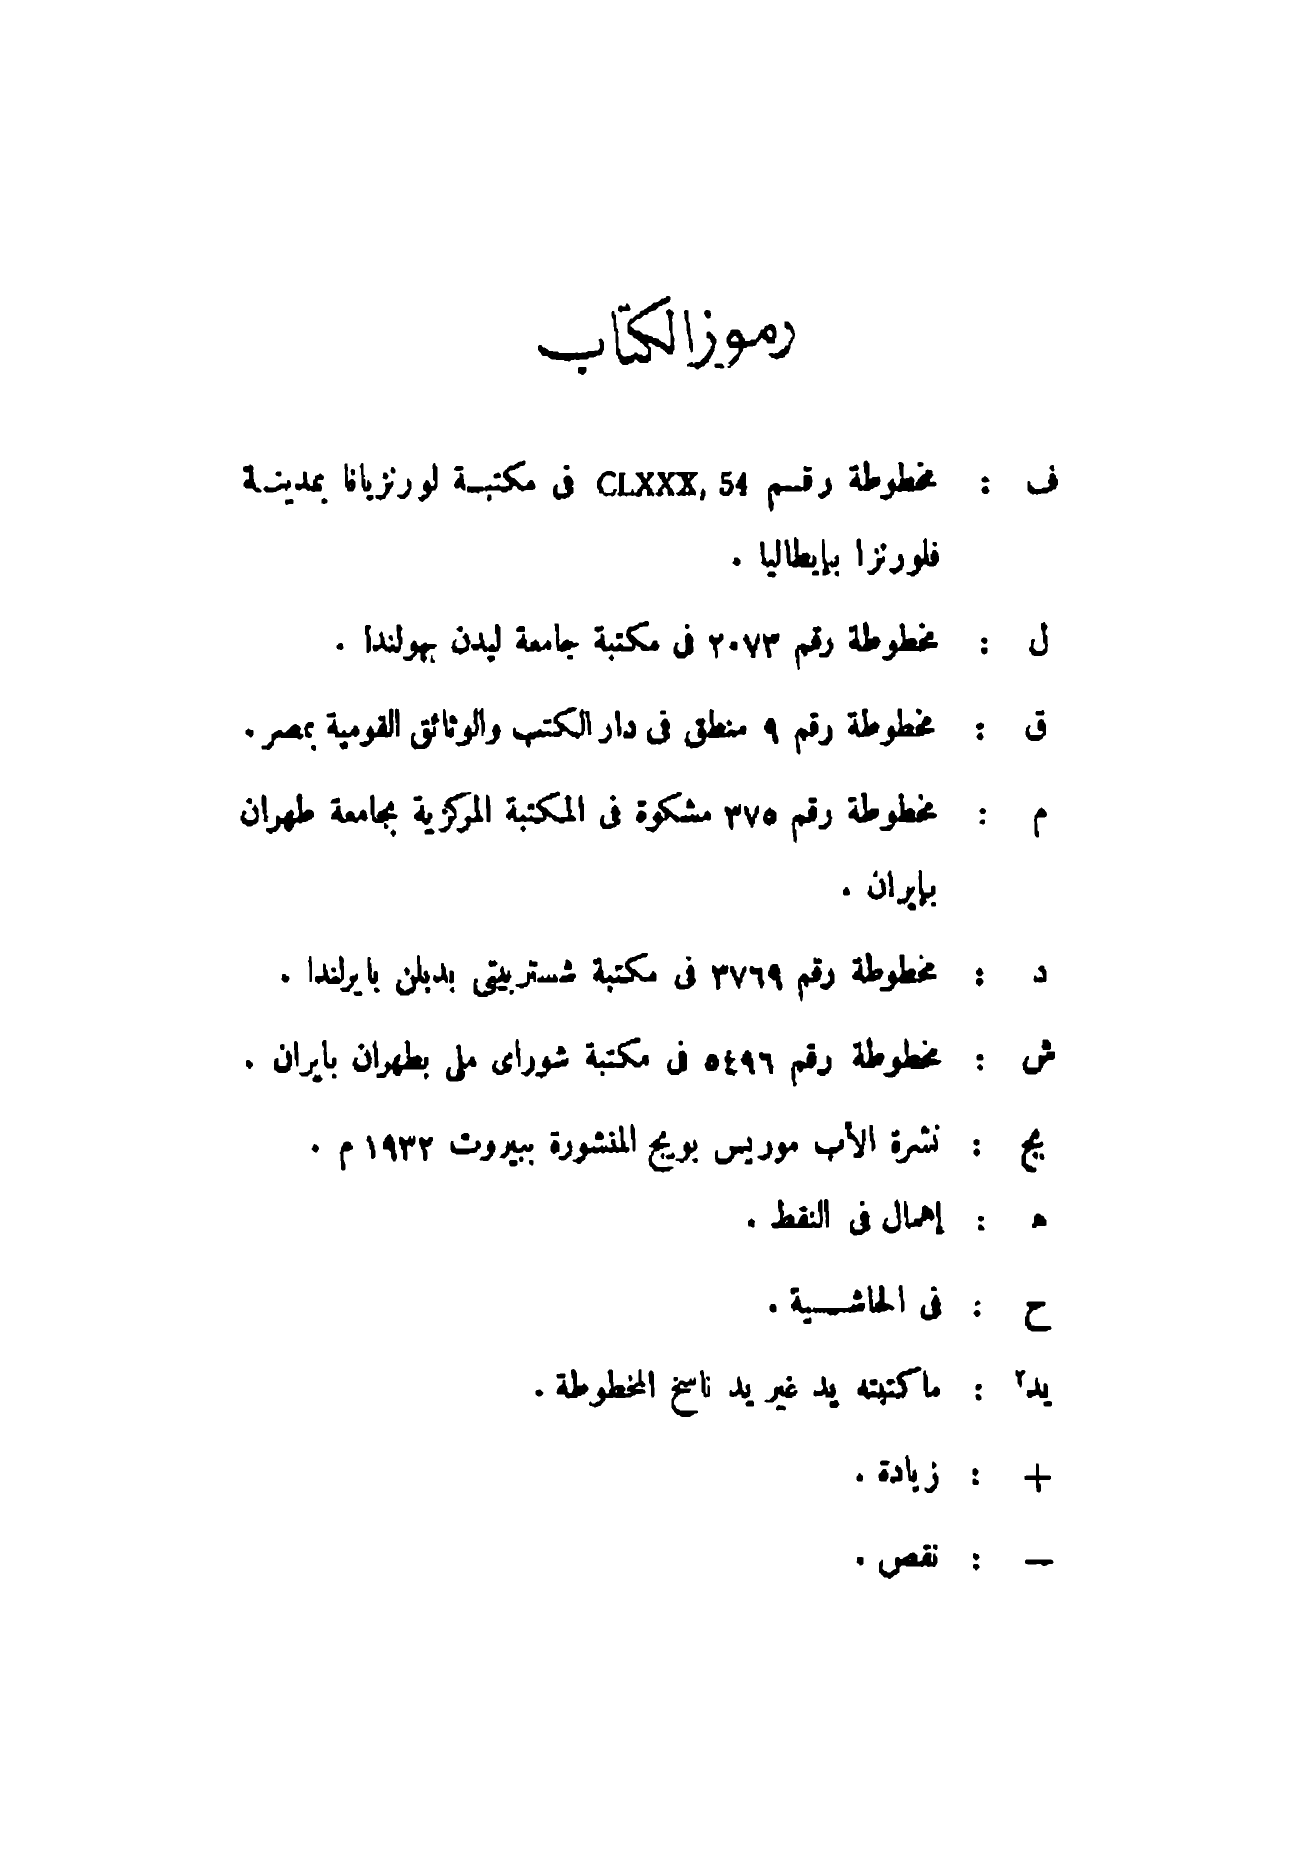 رموز الكتاب
ف : مخطوطة رقم CLXXX, 54 فى مكتبة لورنزيانا بمدينة
فلورنزا بإيطاليا .
ل : مخطوطة رقم ٢٠٧٣ فى مكتبة جامعة ليدن بهولندا .
ق : مخطوطة رقم ٩ منطق فى دار الكتب والوثائق القومية بمصر .
م : مخطوطة رقم ٣٧٥ مشكوة فى المكتبة المركزية بجامعة طهران
بإيران .
د : مخطوطة رقم ٣٧٦٩ فى مكتبة شستربيتى بدبلن بايرلندا .
ش : مخطوطة رقم ٥٤٩٦ فى مكتبة شوراى ملى بطهران بايران .
يج : نشرة الأب موريس بويج المنشورة ببيروت ١٩٣٢ م .
ه : إهمال فى النقط .
ح : فى الحاشية .
يد٢ : ما كتبته يد غير يد ناسخ المخطوطة .
+ : زيادة .
— : نقص .